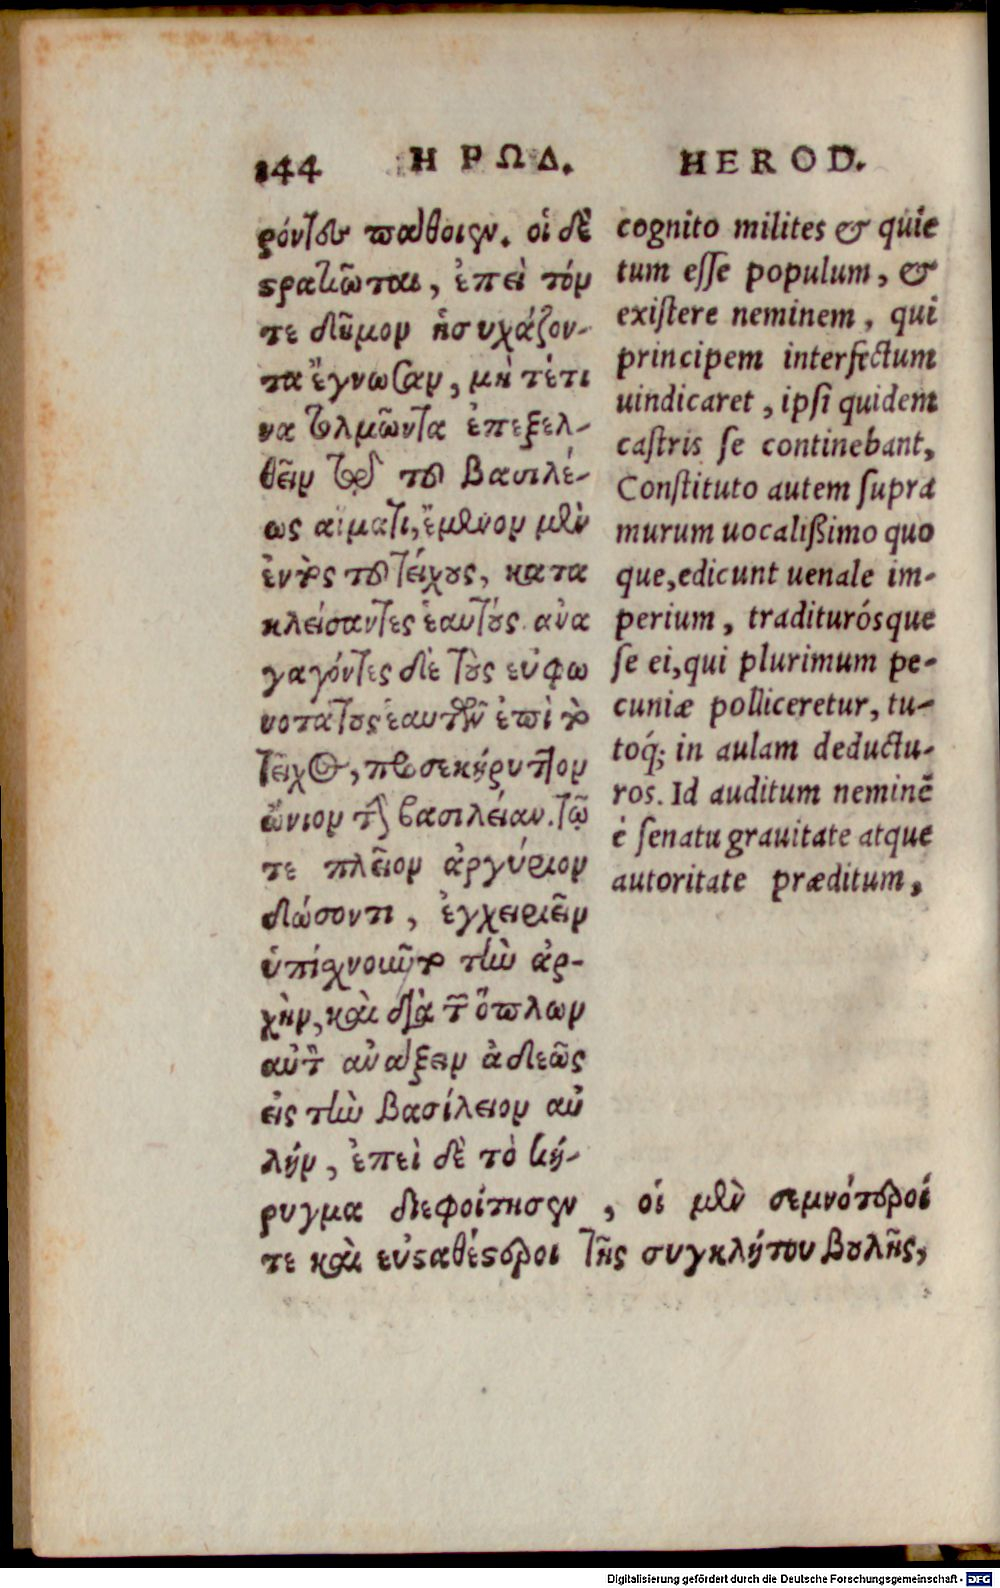 144 ΗΡΩΔ. HEROD.
ρόντων πάθοιεν. οἱ δὲ
στρατιῶται, ἐπεὶ τόν
τε δῆμον ἡσυχάζον-
τα ἔγνωσαν, μήτέ τι
να τολμῶντα ἐπεξελ-
θεῖν τῷ τοῦ βασιλέ-
ως αἵματι, ἔμενον μὲν
ἐντὸς τοῦ τείχους, κατα
κλείσαντες ἑαυτούς. ἀνα
γαγόντες δὲ τοὺς εὐφω
νοτάτους ἑαυτῶν ἐπὶ τὸ
τεῖχος, προσεκήρυττον
ὤνιον τὴν βασιλείαν. τῷ
τε πλεῖον ἀργύριον
δώσοντι, ἐγχειριεῖν
ὑπισχνοῦντο τὴν ἀρ-
χὴν, καὶ διὰ τῶν ὅπλων
αὐτὸν ἀνάξειν ἀδεῶς
εἰς τὴν βασίλειον αὐ
λήν, ἐπεὶ δὲ τὸ κή-
ρυγμα διεφοίτησεν, οἱ μὲν σεμνότεροί
τε καὶ εὐσταθέστεροι τῆς συγκλήτου βουλῆς,
cognito milites & quie
tum esse populum, &
existere neminem, qui
principem interfectum
uindicaret, ipsi quidem
castris se continebant,
Constituto autem supra
murum uocalißimo quo
que, edicunt uenale im-
perium, traditurósque
se ei, qui plurimum pe-
cuniæ polliceretur, tu-
toq́; in aulam deductu-
ros. Id auditum neminē
è senatu grauitate atque
autoritate præditum,
Digitalisierung gefördert durch die Deutsche Forschungsgemeinschaft - DFG